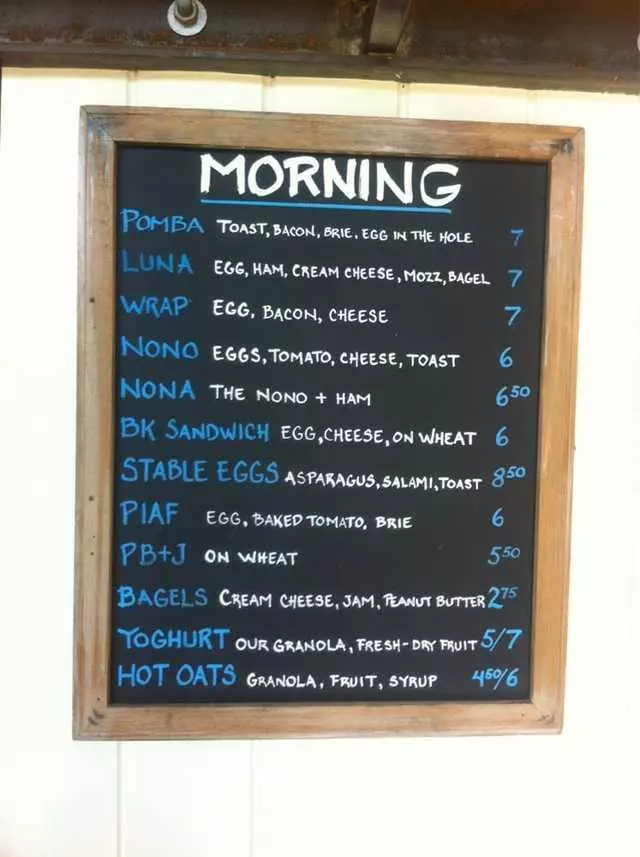 MORNING
POMBA TOAST, BACON, BRIE, EGG IN THE HOLE 7
LUNA EGG, HAM, CREAM CHEESE, MOZZ, BAGEL 7
WRAP EGG, BACON, CHEESE 7
NONO EGGS, TOMATO, CHEESE, TOAST 6
NONA THE NONO + HAM 6 50
BK SANDWICH EGG, CHEESE, ON WHEAT 6
STABLE EGGS ASPARAGUS, SALAMI, TOAST 8 50
PIAF EGG, BAKED TOMATO, BRIE 6
PB+J ON WHEAT 5 50
BAGELS CREAM CHEESE, JAM, PEANUT BUTTER 2 75
YOGHURT OUR GRANOLA, FRESH-DRY FRUIT 5/7
HOT OATS GRANOLA, FRUIT, SYRUP 4 50/6